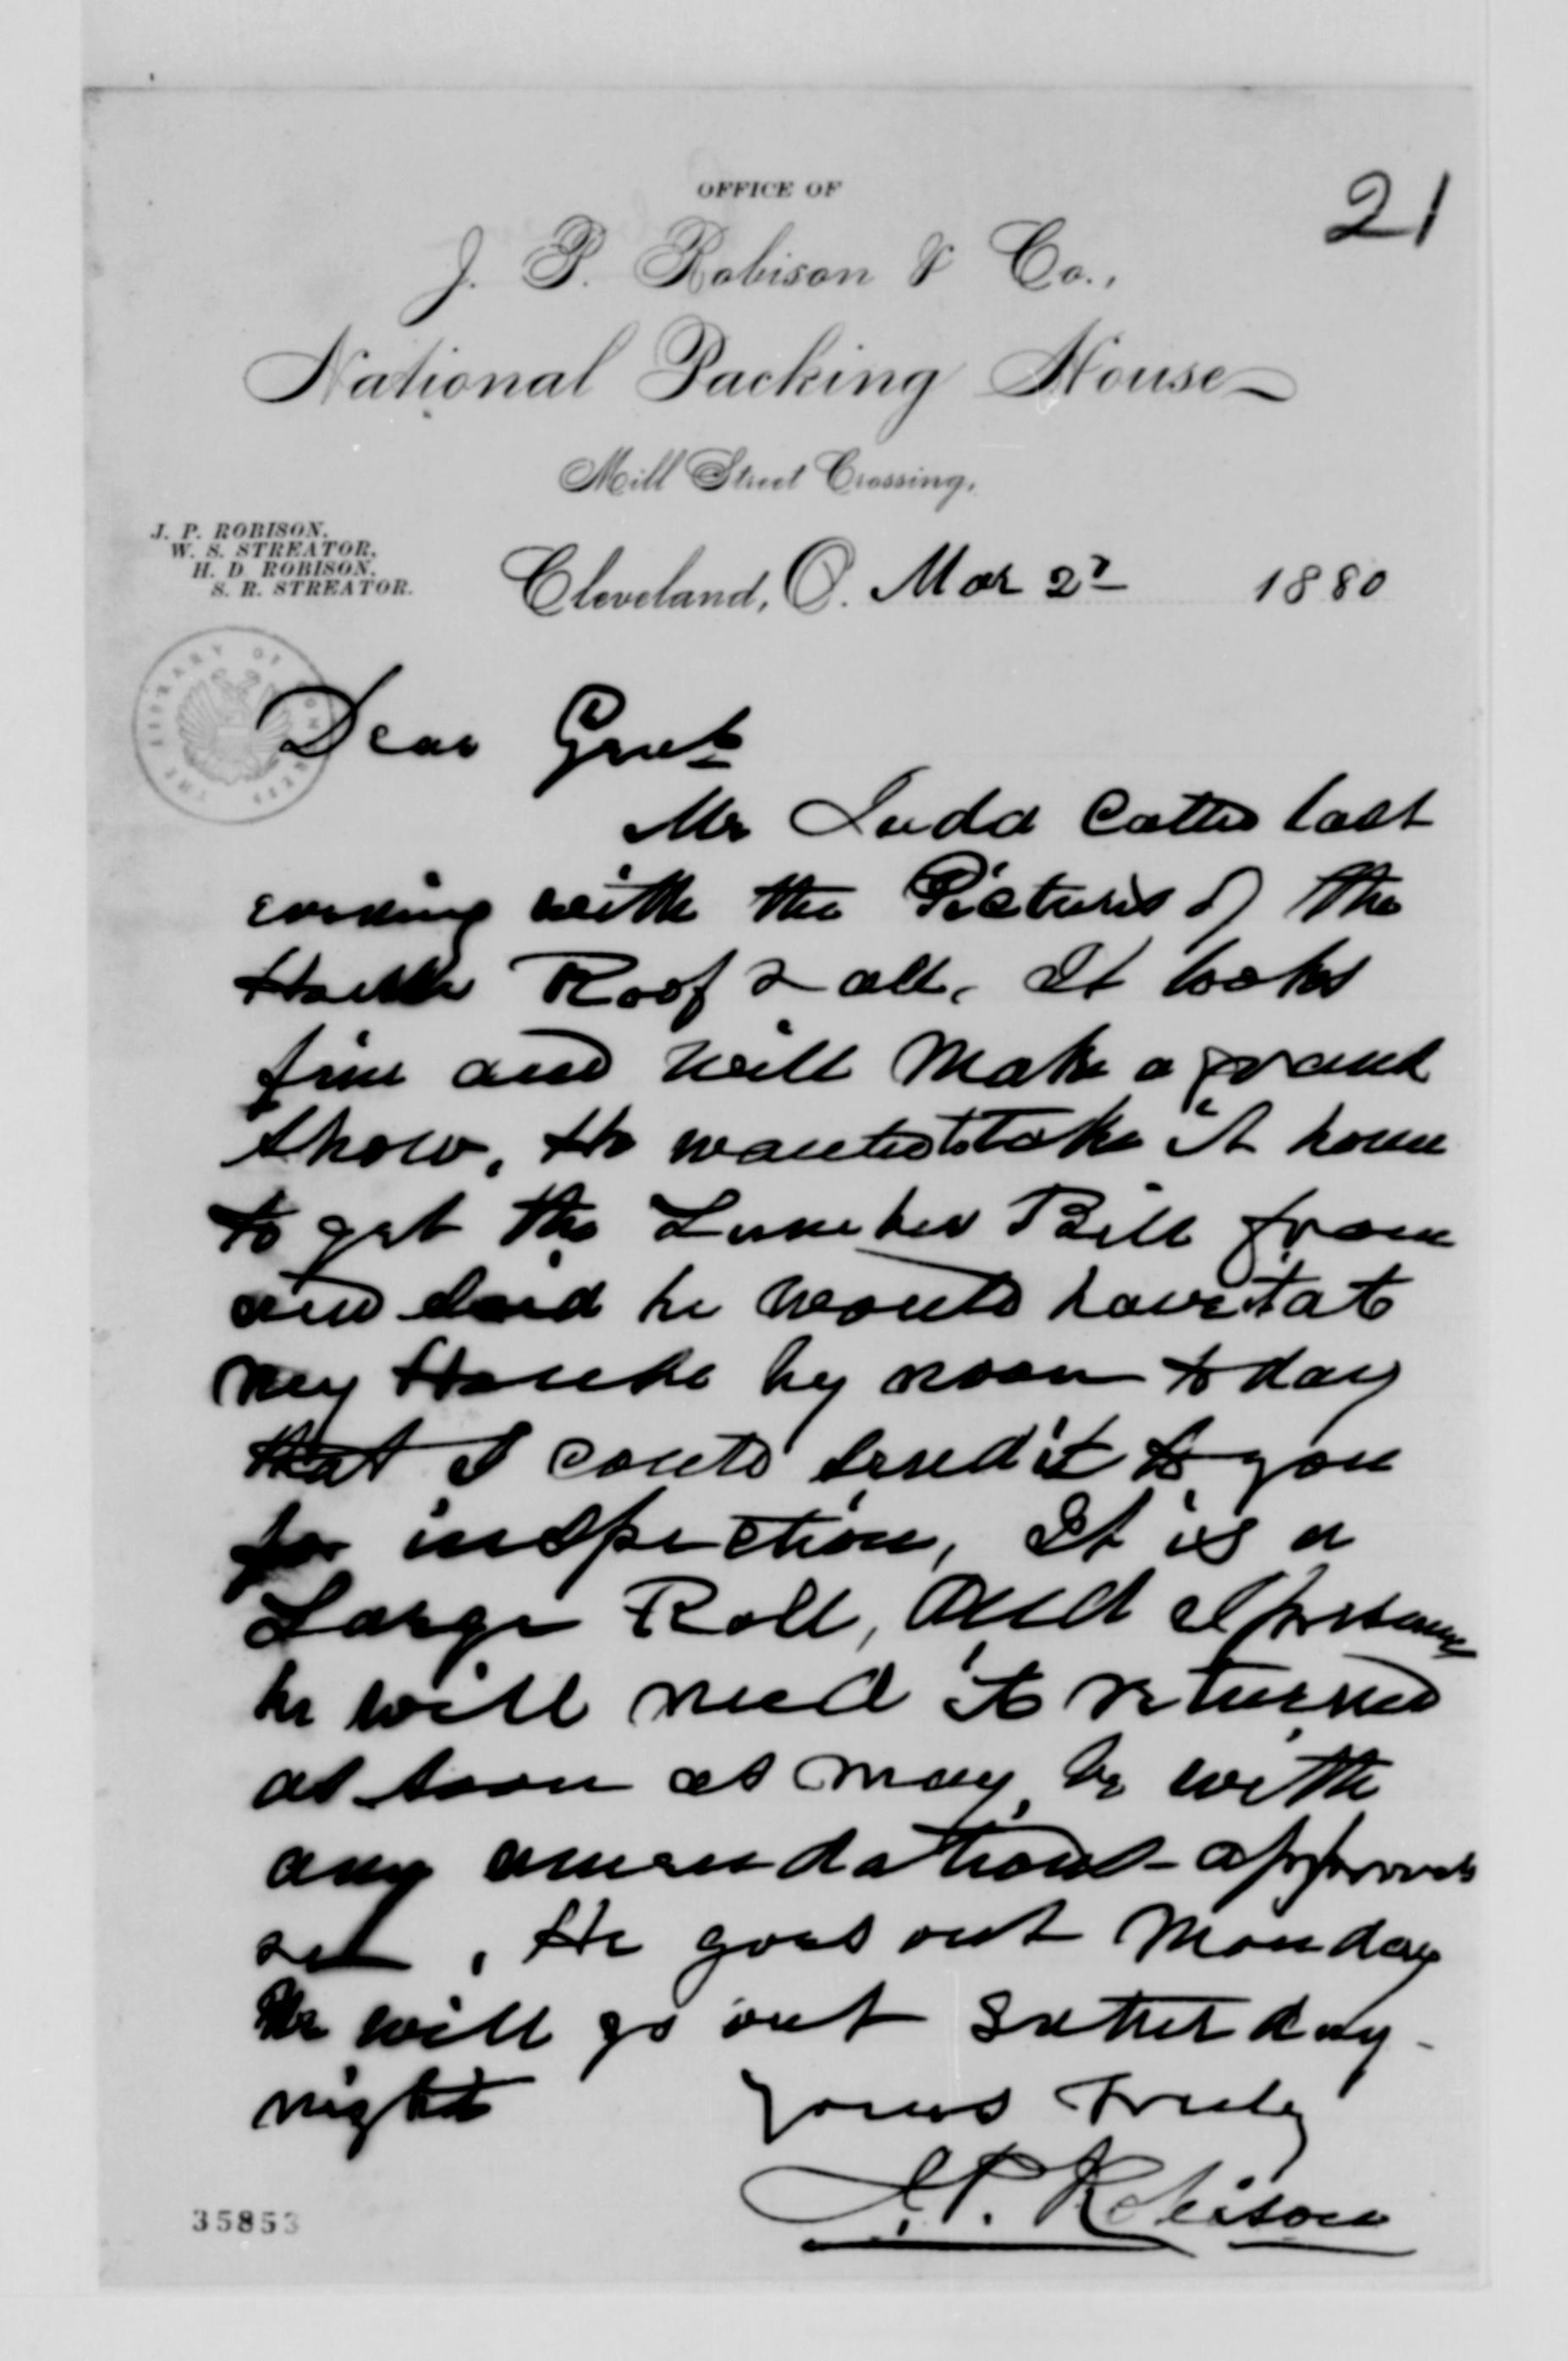 21
OFFICE OF
J. P. Robison & Co.,
National Packing House
Mill Street Crossing,
J. P. ROBISON.
W. S. STREATOR.
H. D. ROBISON.
S. R. STREATOR.
Cleveland, O. Mar 2 1880
THE LIBRARY OF CONGRESS
Dear
Mr Judd Called last
evening with the Pictures of the
House Roof & all, It looks
fine and will Make a grand
show, He wanted to take it home
to get the Lumber Bill from
and said he would have it at
my House by noon to day
that I could send it to you
for inspection, It is a
Large Roll, and I presume
he will need it returned
as soon as may be with
any amendations - approvals
. He goes out Monday
will go out Satturday -
night Yours Truly
J.P. Robison
35853